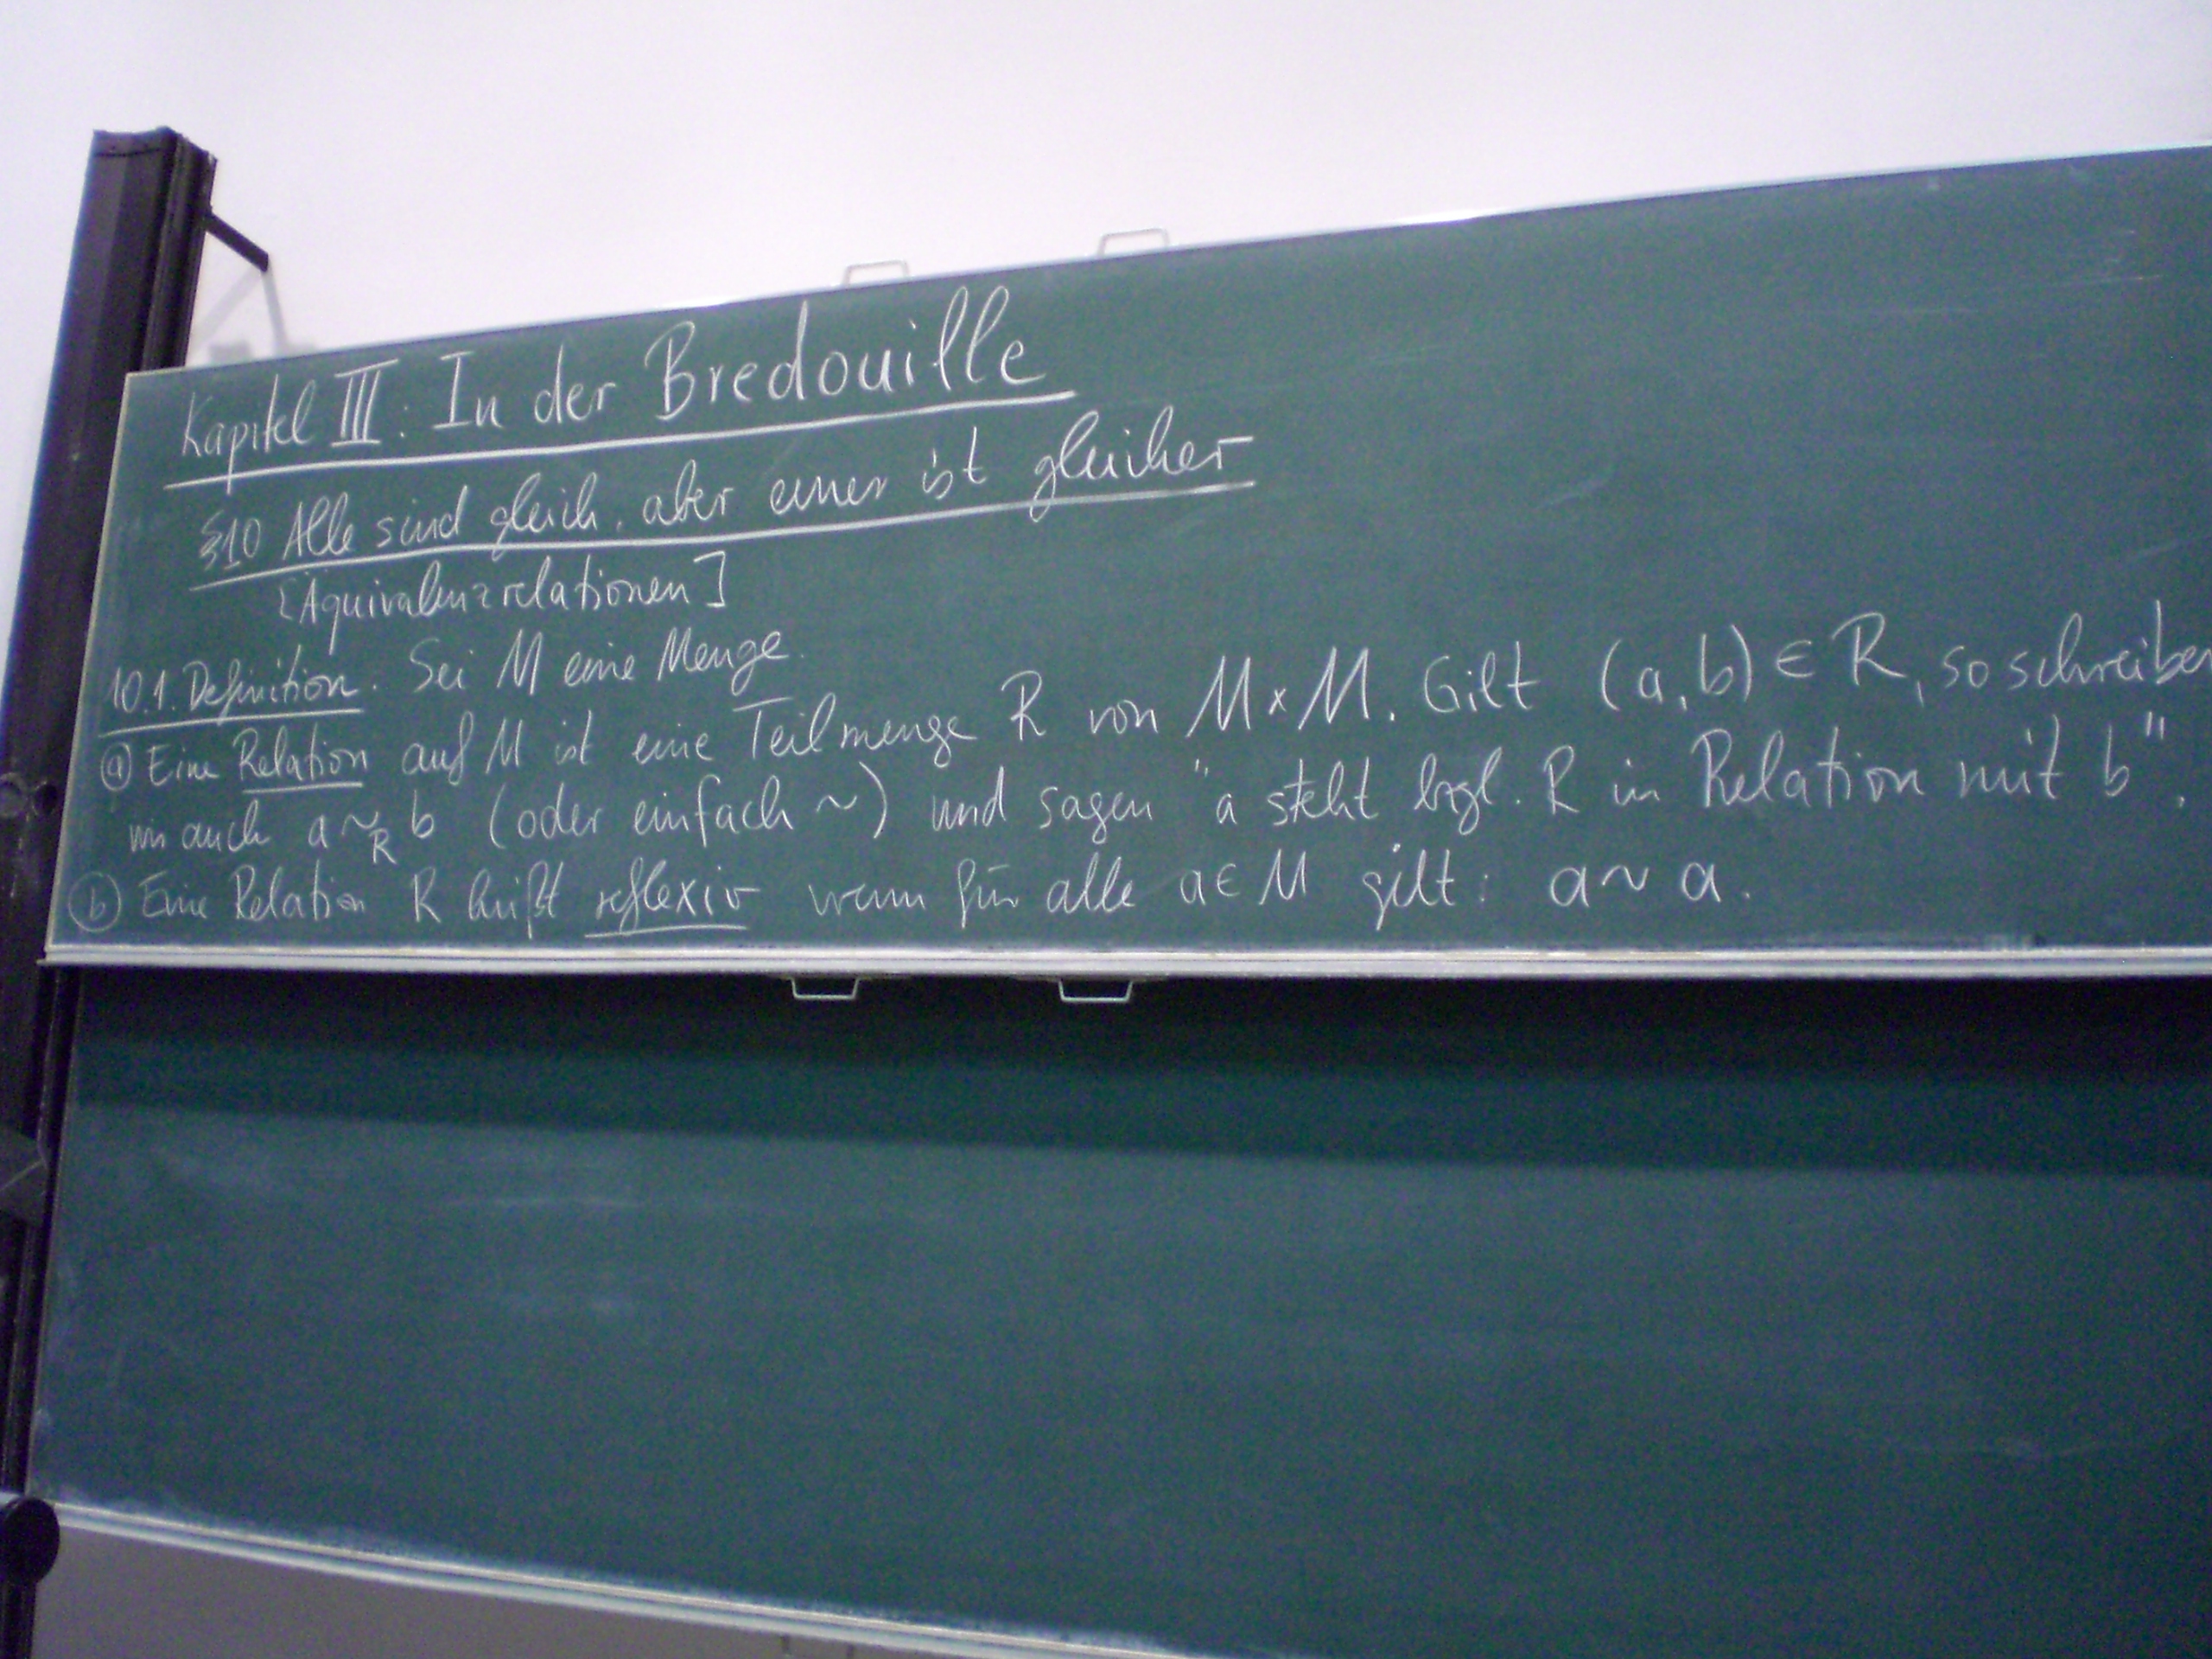 Kapitel III: In der Bredouille
§10 Alle sind gleich, aber einer ist gleicher
[Äquivalenzrelationen]
10.1. Definition. Sei M eine Menge.
(a) Eine Relation auf M ist eine Teilmenge R von M×M. Gilt (a,b) ∈ R, so schreiben
wir auch a ~_R b (oder einfach ~) und sagen "a steht bzgl. R in Relation mit b".
(b) Eine Relation R heißt reflexiv wenn für alle a∈M gilt: a ~ a.